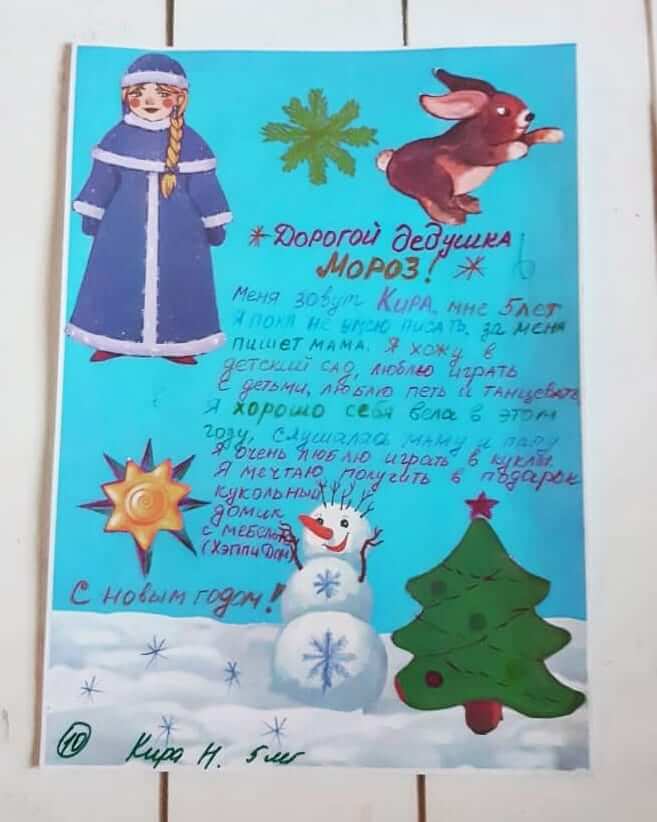 * Дорогой дедушка
Мороз! *
Меня зовут Кира, мне 5 лет
Я пока не умею писать, за меня
пишет мама. Я хожу в
детский сад, люблю играть
с детьми, люблю петь и танцевать
Я хорошо себя вела в этом
году, слушалась маму и папу
Я очень люблю играть в куклы.
Я мечтаю получить в подарок
кукольный
домик
с мебелью
(Хэппи Дом)
С новым годом!
10 Кира Н. 5 лет